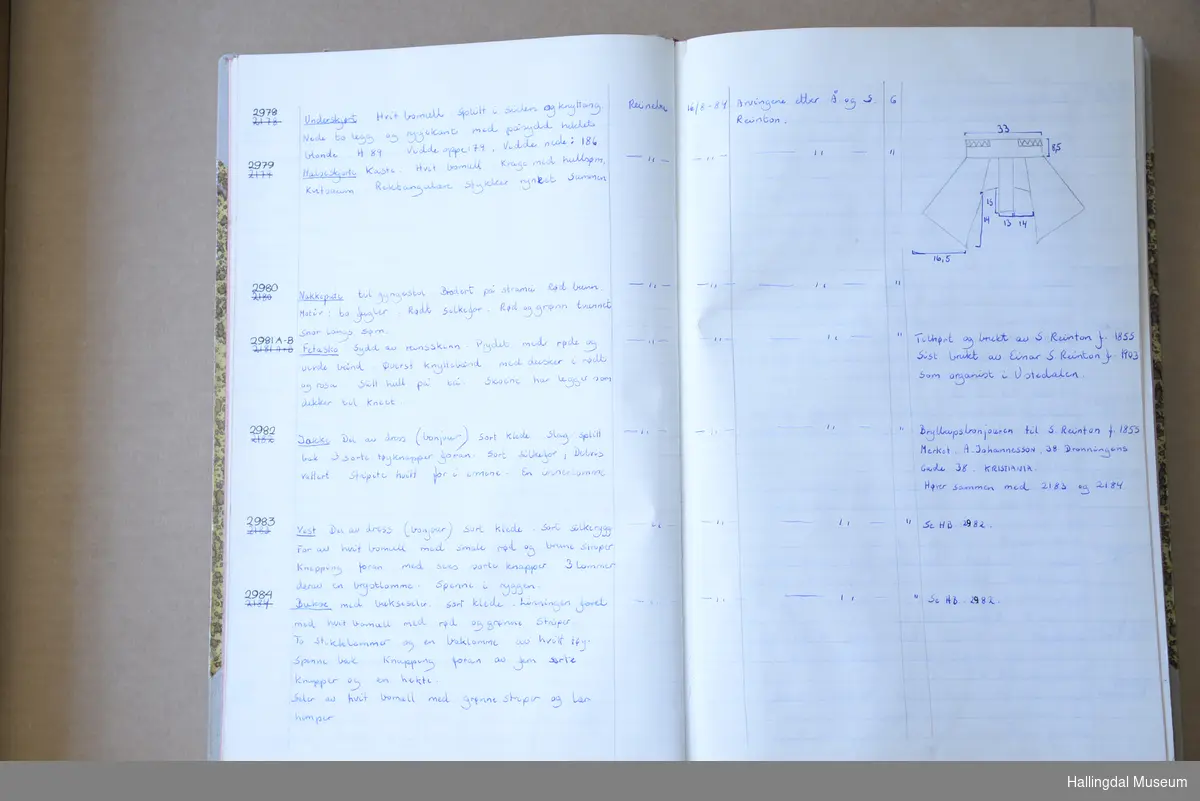 2978 Underskjørt Hvit bomull Splitt i siden og knytting Reinton 16/8-84 Arvingene etter Å og S. G
2178 Nede to legg og ryggekant med påsydd heklet Reinton.
blonde H 89 Vidde oppe 79, Vidde nede: 186
2979 Halvskjorte Kvite. Hvit bomull Krage med hullsøm, — " — — " — — " — "
2179 Kvitsaum Rektangulære stykker rynket sammen
33
8,5
15
14 13 14
16,5
2980 Nakkepute til gyngestol Brodert på stramei Rød bunn. — " — — " — — " — "
2180 Motiv: to fugler. Rødt silkefor. Rød og grønn tvunnet
snor langs søm.
2981 A-B Fetasko Sydd av reinsskinn. Prydet med røde og — " — — " — — " — " Tilhørt og brukt av S Reinton f. 1855
2181 A+B hvide bånd Øverst knyttebånd med dusker i rødt Sist brukt av Einar S Reinton f. 1903
og rosa Slitt hull på tå. Skoene har legger som som organist i Ustedalen.
dekker til kneet.
2982 Jakke Del av dress (bonjour) Sort klede Slag splitt — " — — " — — " — " Bryllupsbonjouren til S. Reinton f. 1855
2182 bak 3 sorte tøyknapper foran. Sort silkefor, Dobbel Merket. A. Johannesson, 38 Dronningens
vattert Stripete hvitt for i ermene. En innerlomme Gade 38. KRISTIANIA.
Hører sammen med 2183 og 2184
2983 Vest Del av dress (bonjour) Sort klede. Sort silkerygg — " — — " — — " — " Se HB 2982.
2183 For av hvit bomull med smale rød og brune striper
Knepping foran med seks sorte knapper 3 lommer
derav en brystlomme. Spenne i ryggen.
2984 Bukse med bukseseler. Sort klede. Linningen foret — " — — " — — " — " Se HB 2982.
2184 med hvit bomull med rød og grønne striper.
To stikklommer og en baklomme av hvitt tøy.
Spenne bak Knepping foran av fem sorte
knapper og en hekte.
Seler av hvit bomull med grønne striper og lær
hemper
Hallingdal Museum